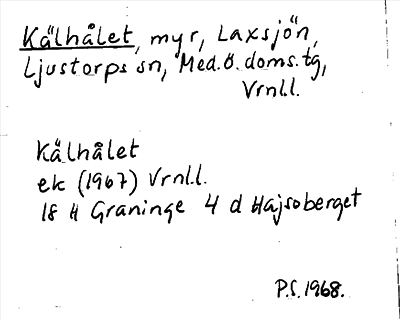 Kälhålet, myr, Laxsjön,
Ljustorps sn, Med.Ö.doms.tg,
Vrnl.l.
Kälhålet
ek (1967) Vrnl.l.
18 H Graninge 4 d Hajsoberget
P.S. 1968.